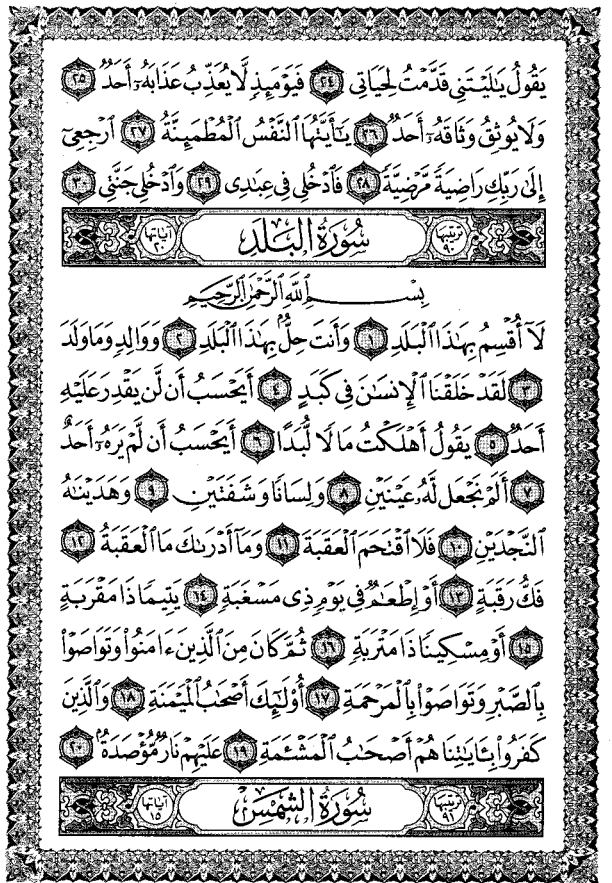 يَقُولُ يَٰلَيۡتَنِي قَدَّمۡتُ لِحَيَاتِي ٢٤ فَيَوۡمَئِذٖ لَّا يُعَذِّبُ عَذَابَهُۥٓ أَحَدٞ ٢٥
وَلَا يُوثِقُ وَثَاقَهُۥٓ أَحَدٞ ٢٦ يَٰٓأَيَّتُهَا ٱلنَّفۡسُ ٱلۡمُطۡمَئِنَّةُ ٢٧ ٱرۡجِعِيٓ
إِلَىٰ رَبِّكِ رَاضِيَةٗ مَّرۡضِيَّةٗ ٢٨ فَٱدۡخُلِي فِي عِبَٰدِي ٢٩ وَٱدۡخُلِي جَنَّتِي ٣٠
ترتيبها ٩٠ سُورَةُ الْبَلَدِ آياتها ٢٠
بِسۡمِ ٱللَّهِ ٱلرَّحۡمَٰنِ ٱلرَّحِيمِ
لَآ أُقۡسِمُ بِهَٰذَا ٱلۡبَلَدِ ١ وَأَنتَ حِلُّۢ بِهَٰذَا ٱلۡبَلَدِ ٢ وَوَالِدٖ وَمَا وَلَدَ
٣ لَقَدۡ خَلَقۡنَا ٱلۡإِنسَٰنَ فِي كَبَدٍ ٤ أَيَحۡسَبُ أَن لَّن يَقۡدِرَ عَلَيۡهِ
أَحَدٞ ٥ يَقُولُ أَهۡلَكۡتُ مَالٗا لُّبَدًا ٦ أَيَحۡسَبُ أَن لَّمۡ يَرَهُۥٓ أَحَدٌ
٧ أَلَمۡ نَجۡعَل لَّهُۥ عَيۡنَيۡنِ ٨ وَلِسَانٗا وَشَفَتَيۡنِ ٩ وَهَدَيۡنَٰهُ
ٱلنَّجۡدَيۡنِ ١٠ فَلَا ٱقۡتَحَمَ ٱلۡعَقَبَةَ ١١ وَمَآ أَدۡرَىٰكَ مَا ٱلۡعَقَبَةُ ١٢
فَكُّ رَقَبَةٍ ١٣ أَوۡ إِطۡعَٰمٞ فِي يَوۡمٖ ذِي مَسۡغَبَةٖ ١٤ يَتِيمٗا ذَا مَقۡرَبَةٍ
١٥ أَوۡ مِسۡكِينٗا ذَا مَتۡرَبَةٖ ١٦ ثُمَّ كَانَ مِنَ ٱلَّذِينَ ءَامَنُواْ وَتَوَاصَوۡاْ
بِٱلصَّبۡرِ وَتَوَاصَوۡاْ بِٱلۡمَرۡحَمَةِ ١٧ أُوْلَٰٓئِكَ أَصۡحَٰبُ ٱلۡمَيۡمَنَةِ ١٨ وَٱلَّذِينَ
كَفَرُواْ بِـَٔايَٰتِنَا هُمۡ أَصۡحَٰبُ ٱلۡمَشۡـَٔمَةِ ١٩ عَلَيۡهِمۡ نَارٞ مُّؤۡصَدَةُۢ ٢٠
ترتيبها ٩١ سُورَةُ الشَّمْسِ آياتها ١٥